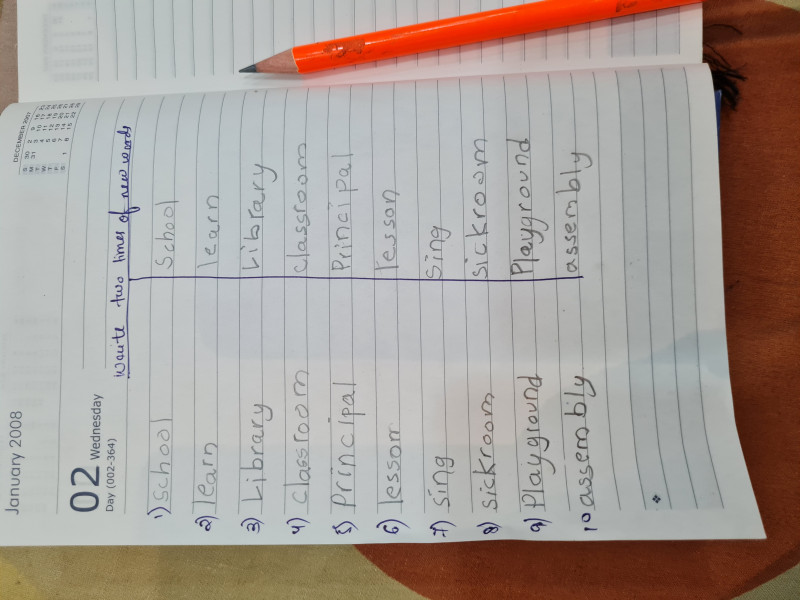 January 2008
02 Wednesday
Day (002-364)
DECEMBER 2007
Waite two times of new words
1) School School
2) learn learn
3) Library Library
4) Classroom Classroom
5) Principal Principal
6) lessom lesson
7) sing sing
8) sickroom sickroom
9) Playground Playground
10 assembly assembly